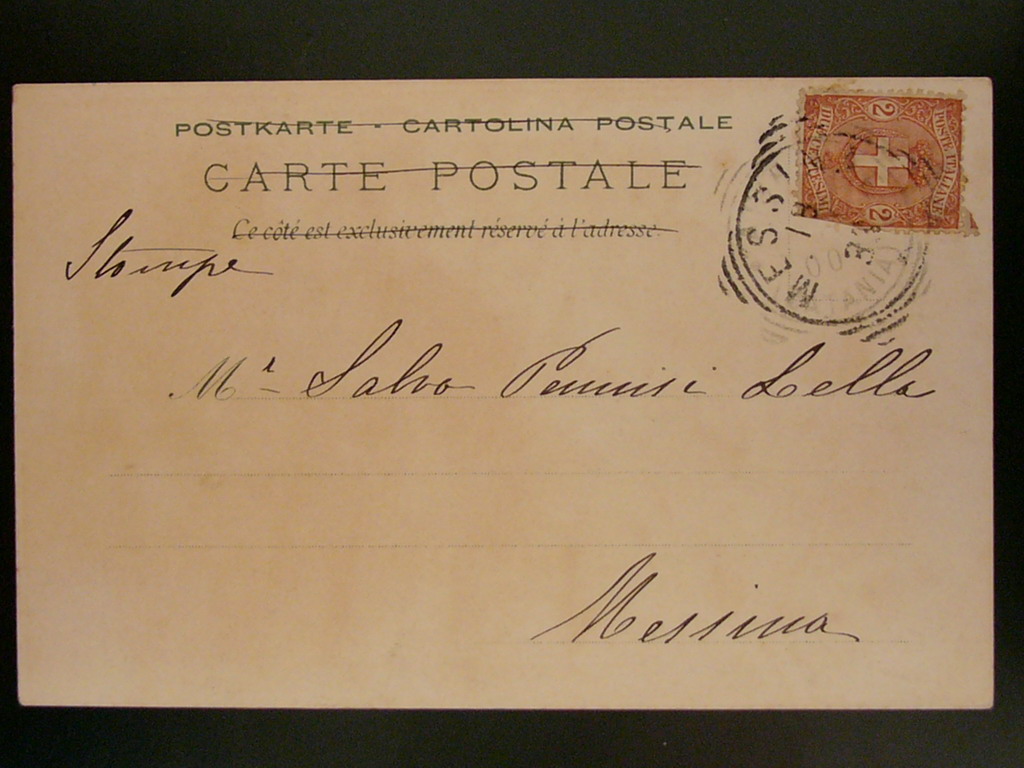 POSTKARTE - CARTOLINA POSTALE
CARTE POSTALE
Ce côté est exclusivement réservé à l'adresse.
Stampe
2
POSTE ITALIANE
DUE CENTESIMI
2
MESSI
18
3
00
TANIA)
Mr Salvo Pennisi Lella
Messina